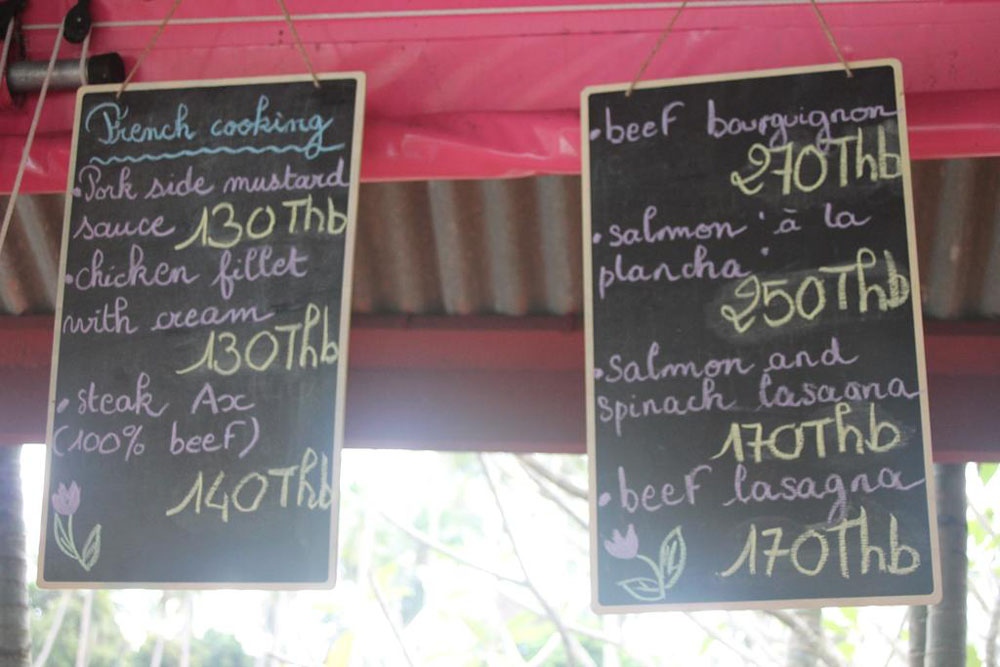 French cooking
• Pork side mustard
sauce 130Thb
• chicken fillet
with cream
130Thb
• steak Ax
(100% beef)
140Thb
• beef bourguignon
270Thb
• salmon 'à la
plancha'
250Thb
• salmon and
spinach lasagna
170Thb
• beef lasagna
170Thb